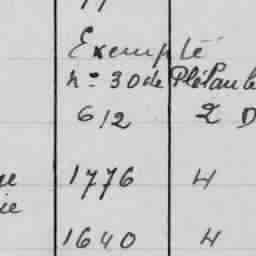 Exempté
n° 30 de Plélan le
612 2 D
1776 4
ie
1640 4